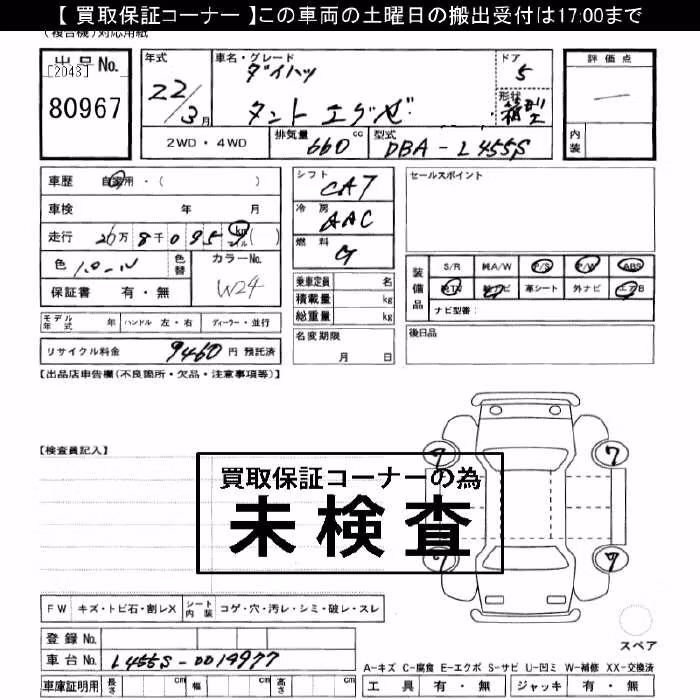 【 買取保証コーナー 】この車両の土曜日の搬出受付は17:00まで
(複合機)対応用紙
出品No.
[2043]
80967
年式
22/3月
車名・グレード
ダイハツ
タント エグゼ
ドア
5
形状
箱型
2WD・4WD
排気量 660 cc
型式 DBA-L455S
評価点
内装
車歴 自家用・( )
車検 年 月
走行 26万8千0959 km マイル( )
色 パール
色替
カラーNo.
W24
保証書 有・無
シフト CAT
冷房 AAC
燃料 G
乗車定員 名
積載量 kg
総重量 kg
セールスポイント
装備品
S/R 純A/W P/S P/W ABS
純TV 純ナビ 革シート 外ナビ エアB
ナビ型番:
モデル年式 年 ハンドル 左・右 ディーラー・並行
名変期限
月 日
後日品
リサイクル料金 9460 円 預託済
【出品店申告欄(不良箇所・欠品・注意事項等)】
【検査員記入】
買取保証コーナーの為
未検査
7
7
7
7
FW キズ・トビ石・割レX
シート内装 コゲ・穴・汚レ・シミ・破レ・スレ
スペア
登録No.
車台No. L455S-0014977
A-キズ C-腐食 E-エクボ S-サビ U-凹ミ W-補修 XX-交換済
車庫証明用 長さ cm 幅 cm 高さ cm
工具 有・無 ジャッキ 有・無